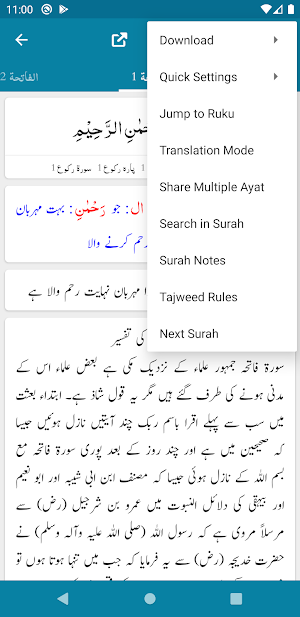 11:00
الفاتحة 2
ة 1
Download
Quick Settings
Jump to Ruku
Translation Mode
Share Multiple Ayat
Search in Surah
Surah Notes
Tajweed Rules
Next Surah
الرَّحِيْمِ
پارہ رکوع 1 سورۃ رکوع 1
ال: جو رَحْمٰنِ: بہت مہربان
رحم کرنے والا
مہربان نہایت رحم والا ہے
کی تفسیر
سورۃ فاتحہ جمہور علماء کے نزدیک مکی ہے بعض علماء اس کے
مدنی ہونے کی طرف گئے ہیں مگر یہ قول شاذ ہے۔ ابتداء بعثت
میں سب سے پہلے اقرا باسم ربک چند آیتیں نازل ہوئیں جیسا
کہ صحیحین میں ہے اور چند روز کے بعد پوری سورۃ فاتحہ مع
بسم اللہ کے نازل ہوئی جیسا کہ مصنف ابن ابی شیبہ اور ابو نعیم
اور بیہقی کی دلائل النبوت میں عمرو بن شرجیل (رض) سے
مرسلاً مروی ہے کہ رسول اللہ (صلی اللہ علیہ وآلہ وسلم) نے
حضرت خدیجہ (رض) سے یہ فرمایا کہ جب میں تنہا ہوتا ہوں تو